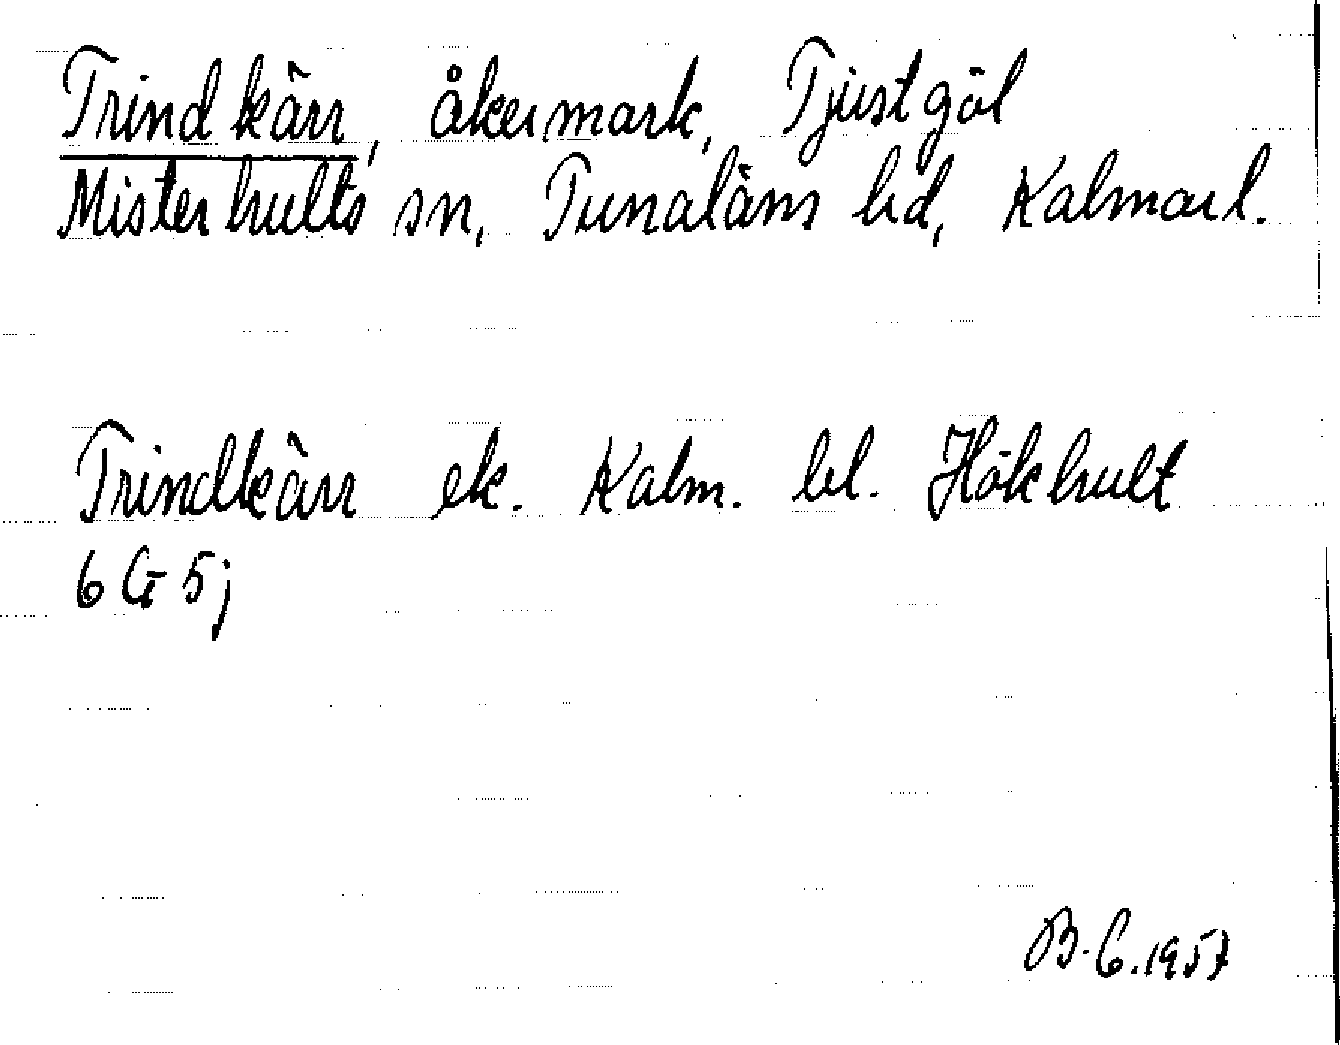 Trindkärr, åkermark, Tjustgöl
Misterhults sn, Tunaläns hd, Kalmar l.
Trindkärr ek. Kalm. bl. Hökhult
6 G 5 j
B. C. 1957